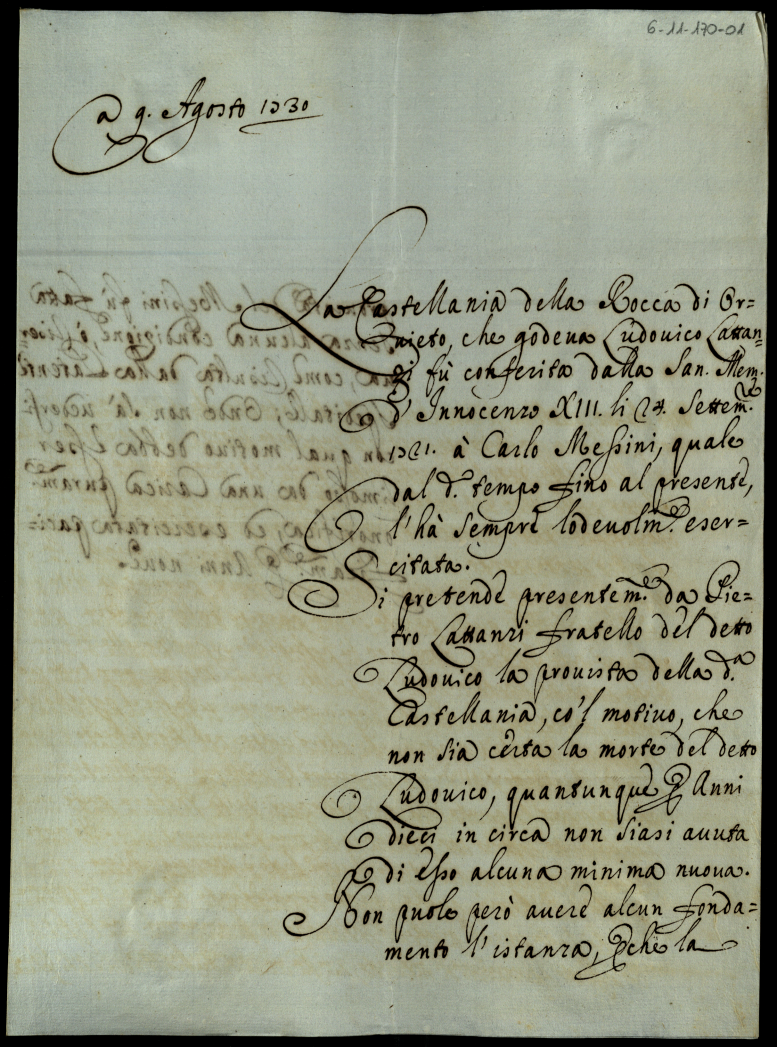 6-11-170-01
a 9. Agosto 1730
La Castellania della Rocca di Or=
uieto, che godeua Ludouico Cattan=
zi fù conferita dalla San. Mem.
d'Innocenzo XIII. li 24. Settem.e
1721. à Carlo Messini, quale
dal d.o tempo fino al presente,
l'hà sempre lodeuolm.e eser=
citata.
Si pretende presentem.e da Pie=
tro Cattanzi fratello del detto
Ludouico la prouista della d.a
Castellania, co'l motiuo, che
non sia certa la morte del detto
Ludouico, quantunque ꝑ Anni
dieci in circa non siasi auuta
di esso alcuna minima nuoua.
Non puole però auere alcun fonda=
mento l'istanza, ꝑche la